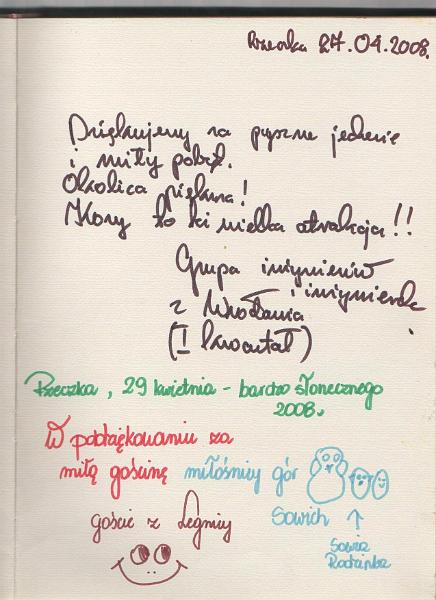 Rzeczka 27.04.2008.
Dziękujemy za pyszne jedzenie
i miły pobyt.
Okolica piękna!
to wielka atrakcja!!
Grupa inżynierów
i inżynierek
z Wrocławia
(I kwartał)
Rzeczka, 29 kwietnia - bardzo słonecznego
2008.
W podziękowaniu za
miłą gościnę miłośnicy gór
Sowich
goście z Legnicy
Sowia
Rodzinka